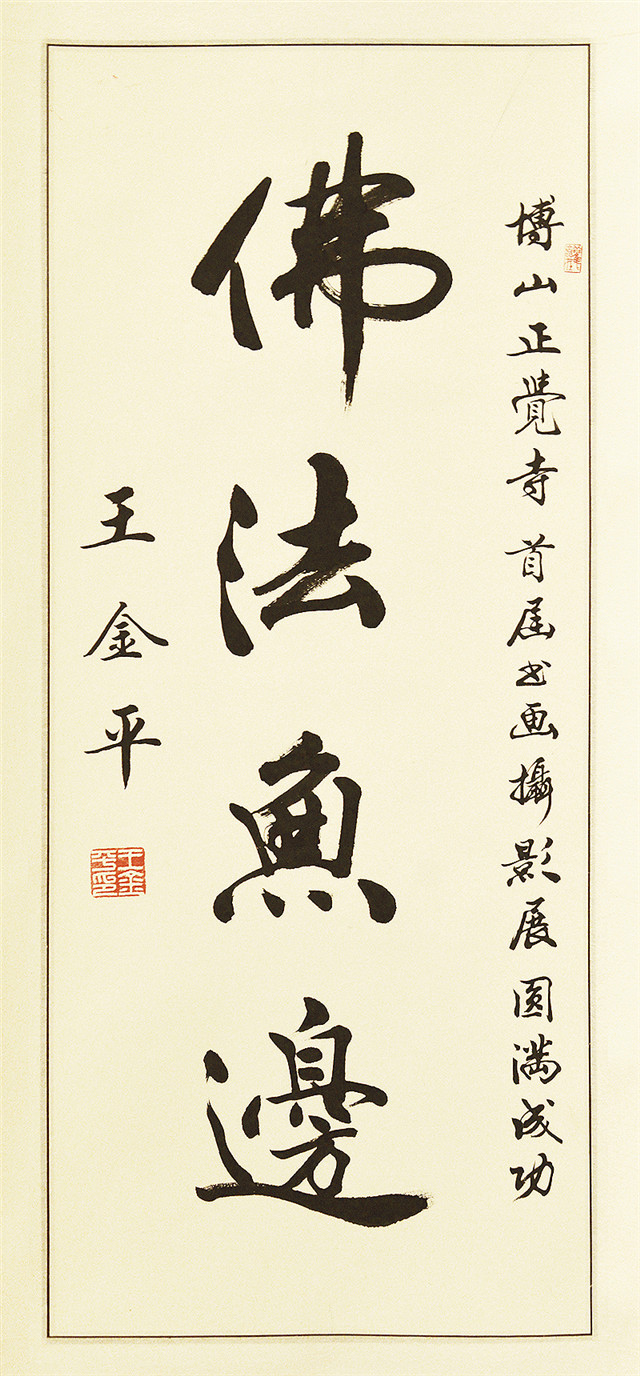 博山正覺寺首屆书画攝影展圆滿成功
佛法無邊
王金平
王金平印